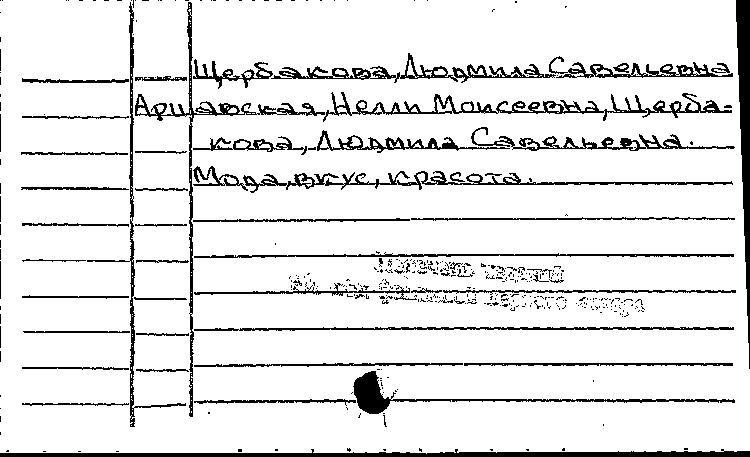 Щербакова, Людмила Савельевна
Аршавская, Нелли Моисеевна, Щерба-
кова, Людмила Савельевна.
Мода, вкус, красота.
первого автора